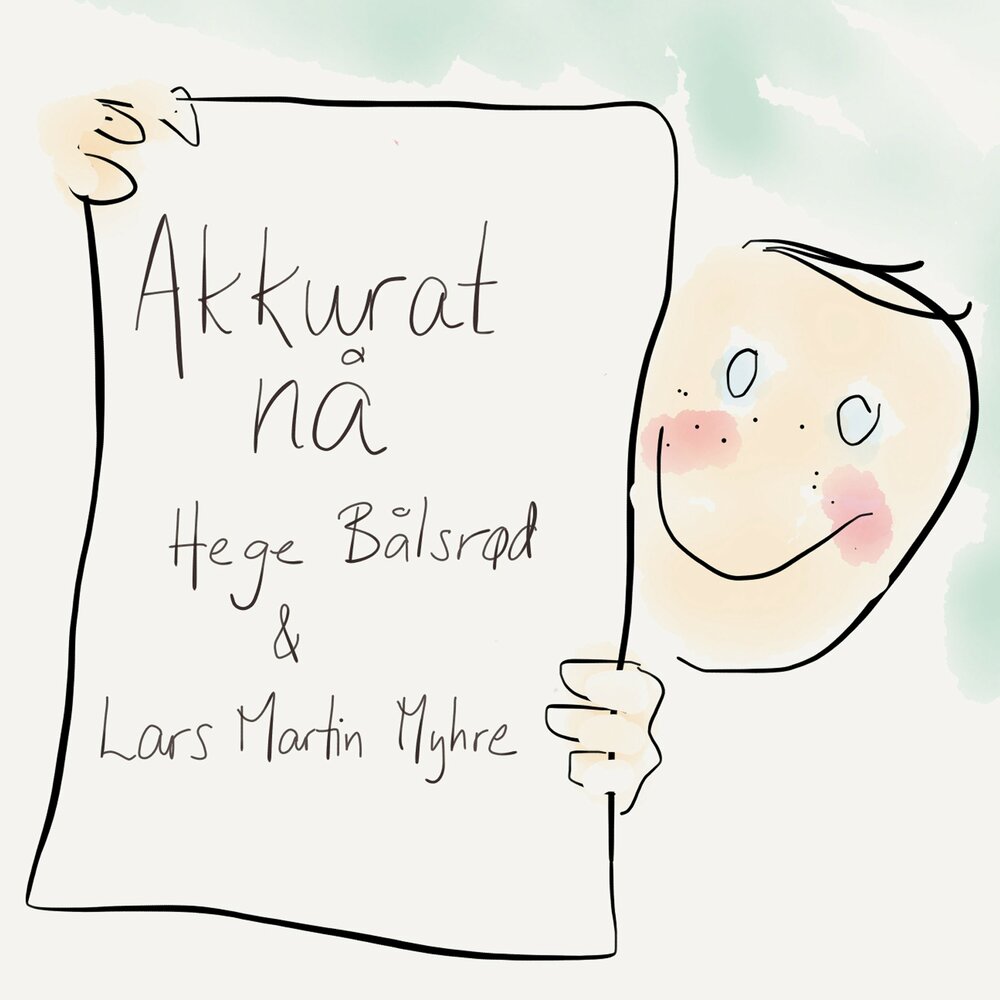 Akkurat
nå
Hege Bålsrød
&
Lars Martin Myhre